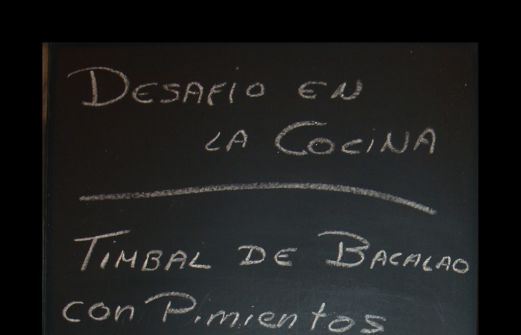 DESAFIO EN
LA COCINA
TIMBAL DE BACALAO
CON PIMIENTOS